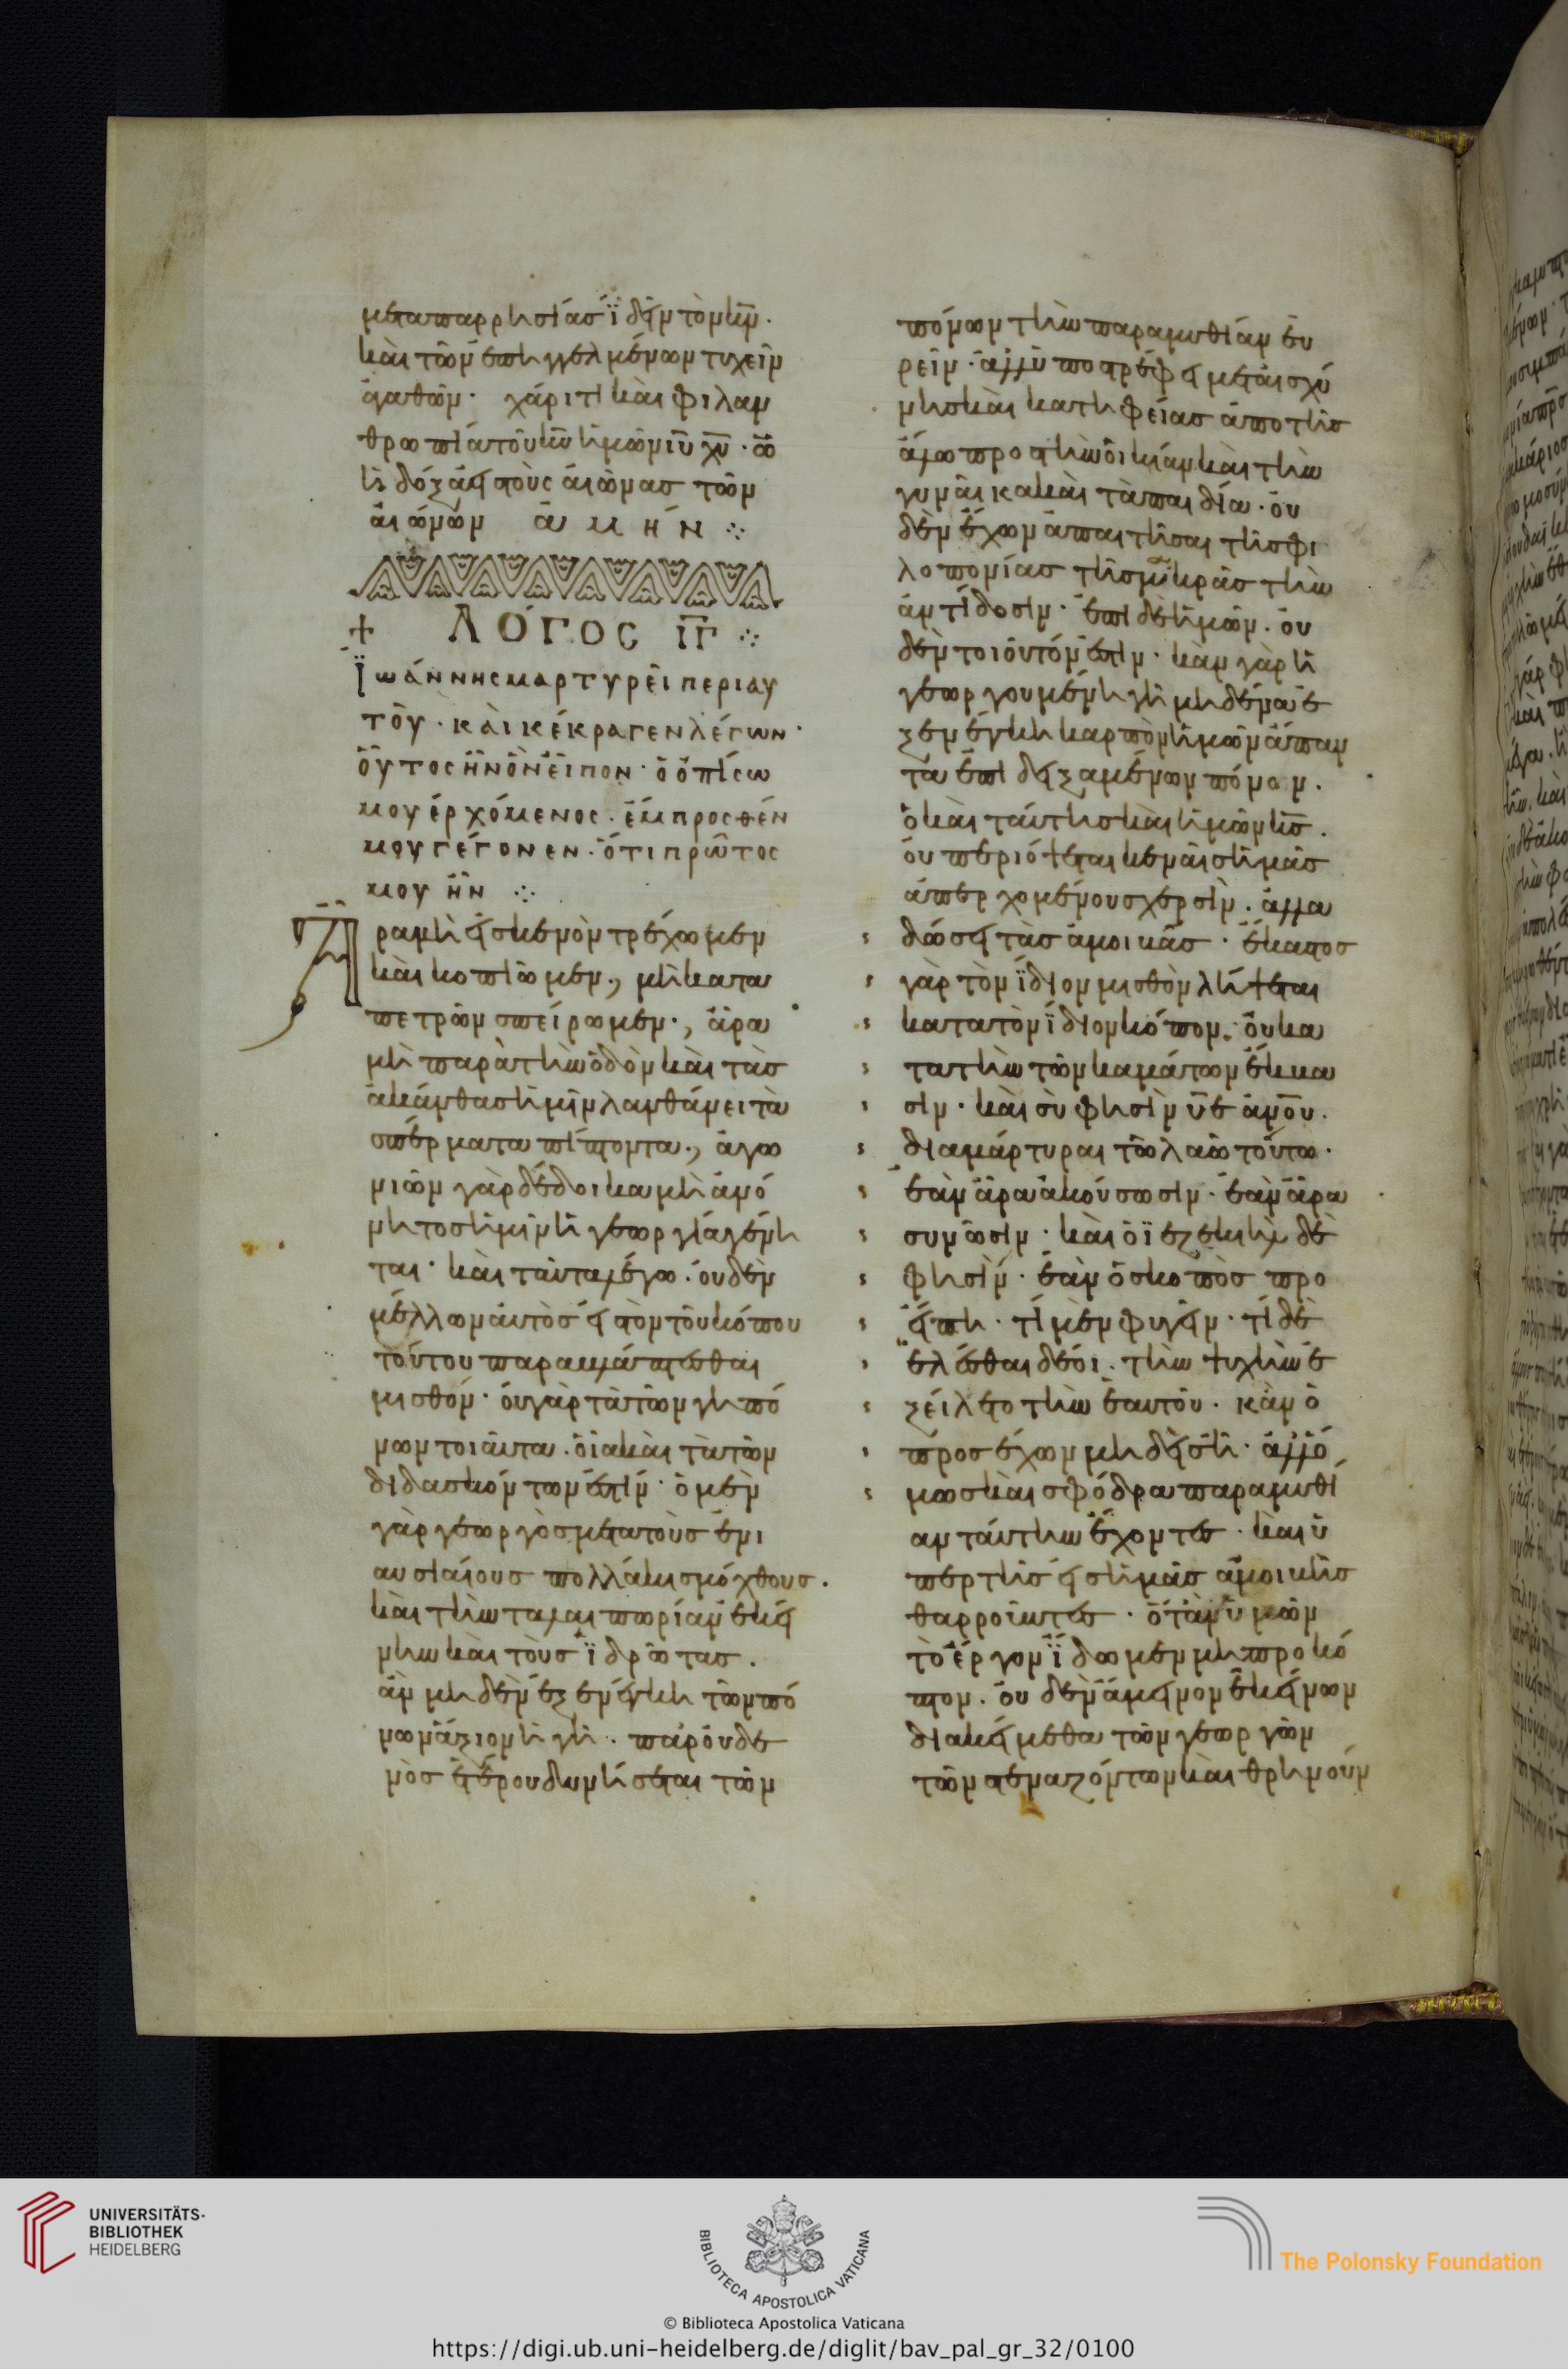 μεταπαρρησίασ ϊδεῖν τὸν κ̅ν̅.
καὶ τῶν ἐπηγγελμένων τυχεῖν
ἀγαθῶν· χάριτι καὶ φιλαν
θρωπία τοῦ κ̅υ̅ ἡμῶν ι̅υ̅ χ̅υ̅· ὧ
ἡ δόξα εἰς τοὺς αἰῶνασ τῶν
αἰώνων ἀμήν ⁘
+ ΛΌΓΟC ΙΓ ⁘
Ϊωάννης μαρτυρεῖ περὶ αυ
τοῦ· καὶ κέκραγεν λέγων·
οὗτος ἦν ὃν εἶπον· ὁ ὀπίσω
μου ἐρχόμενος· ἔμπροσθέν
μου γέγονεν· ὅτι πρῶτος
μου ἦν ⁘
Ἆρα μὴ εἰσ κενὸν τρέχωμεν
καὶ κοπιῶμεν., μὴ κατα
πετρῶν σπείρωμεν., ἆρα
μὴ παρὰ τὴν ὁδὸν καὶ τὰσ
ἀκάνθασ ἡμῖν λανθάνει τὰ
σπέρματα πίπτοντα., ἀγω
νιῶν γὰρ δέδοικα μὴ ἀνό
νητοσ ἡμῖν ἡ γεωργία γένη
ται· καὶ ταῦτα λέγω· οὐδὲν
μέλλων αὐτὸσ εἰσ τὸν τοῦ κόπου
τούτου παραβλάπτεσθαι
μισθόν· οὐ γὰρ τὰ τῶν γηπό
νων τοιαῦτα· οἷα καὶ τὰ τῶν
διδασκόντων ἐστίν· ὁ μὲν
γὰρ γεωργὸσ μετὰ τοὺσ ἐνι
αυσιαίουσ πολλάκισ μόχθουσ.
καὶ τὴν ταλαιπωρίαν ἐκεί
νην καὶ τοὺσ ϊδρῶτασ.
ἂν μηδὲν ἐξενέγκη τῶν πό
νων ἄξιον ἡ γῆ· παρ' οὐδε
νὸσ ἑτέρου δυνήσεται τῶν
πόνων τὴν παραμυθίαν εὑ
ρεῖν· ἀλλ' ὑποστρέφει μετ' αἰσχύ
νησ καὶ κατηφείασ ἀπὸ τῆσ
ἅλω προσ τὴν οἰκίαν καὶ τὴν
γυναῖκα καὶ τὰ παιδία· οὐ
δὲν ἔχων ἀπαιτῆσαι τῆσ φι
λοπονίασ τῆσ μακρᾶσ τὴν
ἀντίδοσιν· ἐπὶ δὲ ἡμῶν· οὐ
δὲν τοιοῦτόν ἐστιν· κἂν γὰρ ἡ
γεωργουμένη γῆ μηδένα ἐ
ξενέγκη καρπὸν ἡμῶν ἅπαν
τα ἐπιδειξαμένων πόνον.
ὁ καὶ ταύτησ καὶ ἡμῶν κ̅σ̅.
οὐ περιόψεται κεναῖσ ἡμᾶσ
ἀπερχομένουσ χερσὶν· ἀλλὰ
δώσει τὰσ ἀμοιβάσ· ἕκαστοσ
γὰρ τὸν ϊδιον μισθὸν λήψεται
κατὰ τὸν ϊδιον κόπον. οὐ κα
τὰ τὴν τῶν καμάτων ἔκβα
σιν· καὶ σὺ φησὶν υ̅ὲ α̅ν̅ου.
διαμάρτυραι τῶ λαῶ τούτω·
ἐὰν ἄρα ἀκούσωσιν· ἐὰν ἄρα
συνῶσιν· καὶ ὁ ϊεζεκιὴλ δὲ
φησίν· ἐὰν ὁ σκοπὸσ προ
είπη· τί μὲν φυγεῖν· τί δὲ
ἑλέσθαι δέοι· τὴν ψυχὴν ἐ
ξείλετο τὴν ἑαυτοῦ· κἂν ὁ
προσέχων μηδεὶσ ἦ· ἀλλ' ὅ
μωσ καὶ σφόδρα παραμυθί
αν ταύτην ἔχοντεσ· καὶ ὑ
πὲρ τῆσ εἰσ ἡμᾶσ ἀμοιβῆσ
θαρροῦντεσ· ὅταν ὑμῶν
τὸ ἔργον ϊδωμεν μὴ προκό
πτον· οὐδὲν ἄμεινον ἐκείνων
διακείμεθα τῶν γεωργῶν
τῶν στεναζόντων καὶ θρηνούν
UNIVERSITÄTS-
BIBLIOTHEK
HEIDELBERG
BIBLIOTECA APOSTOLICA VATICANA
© Biblioteca Apostolica Vaticana
The Polonsky Foundation
https://digi.ub.uni-heidelberg.de/diglit/bav_pal_gr_32/0100